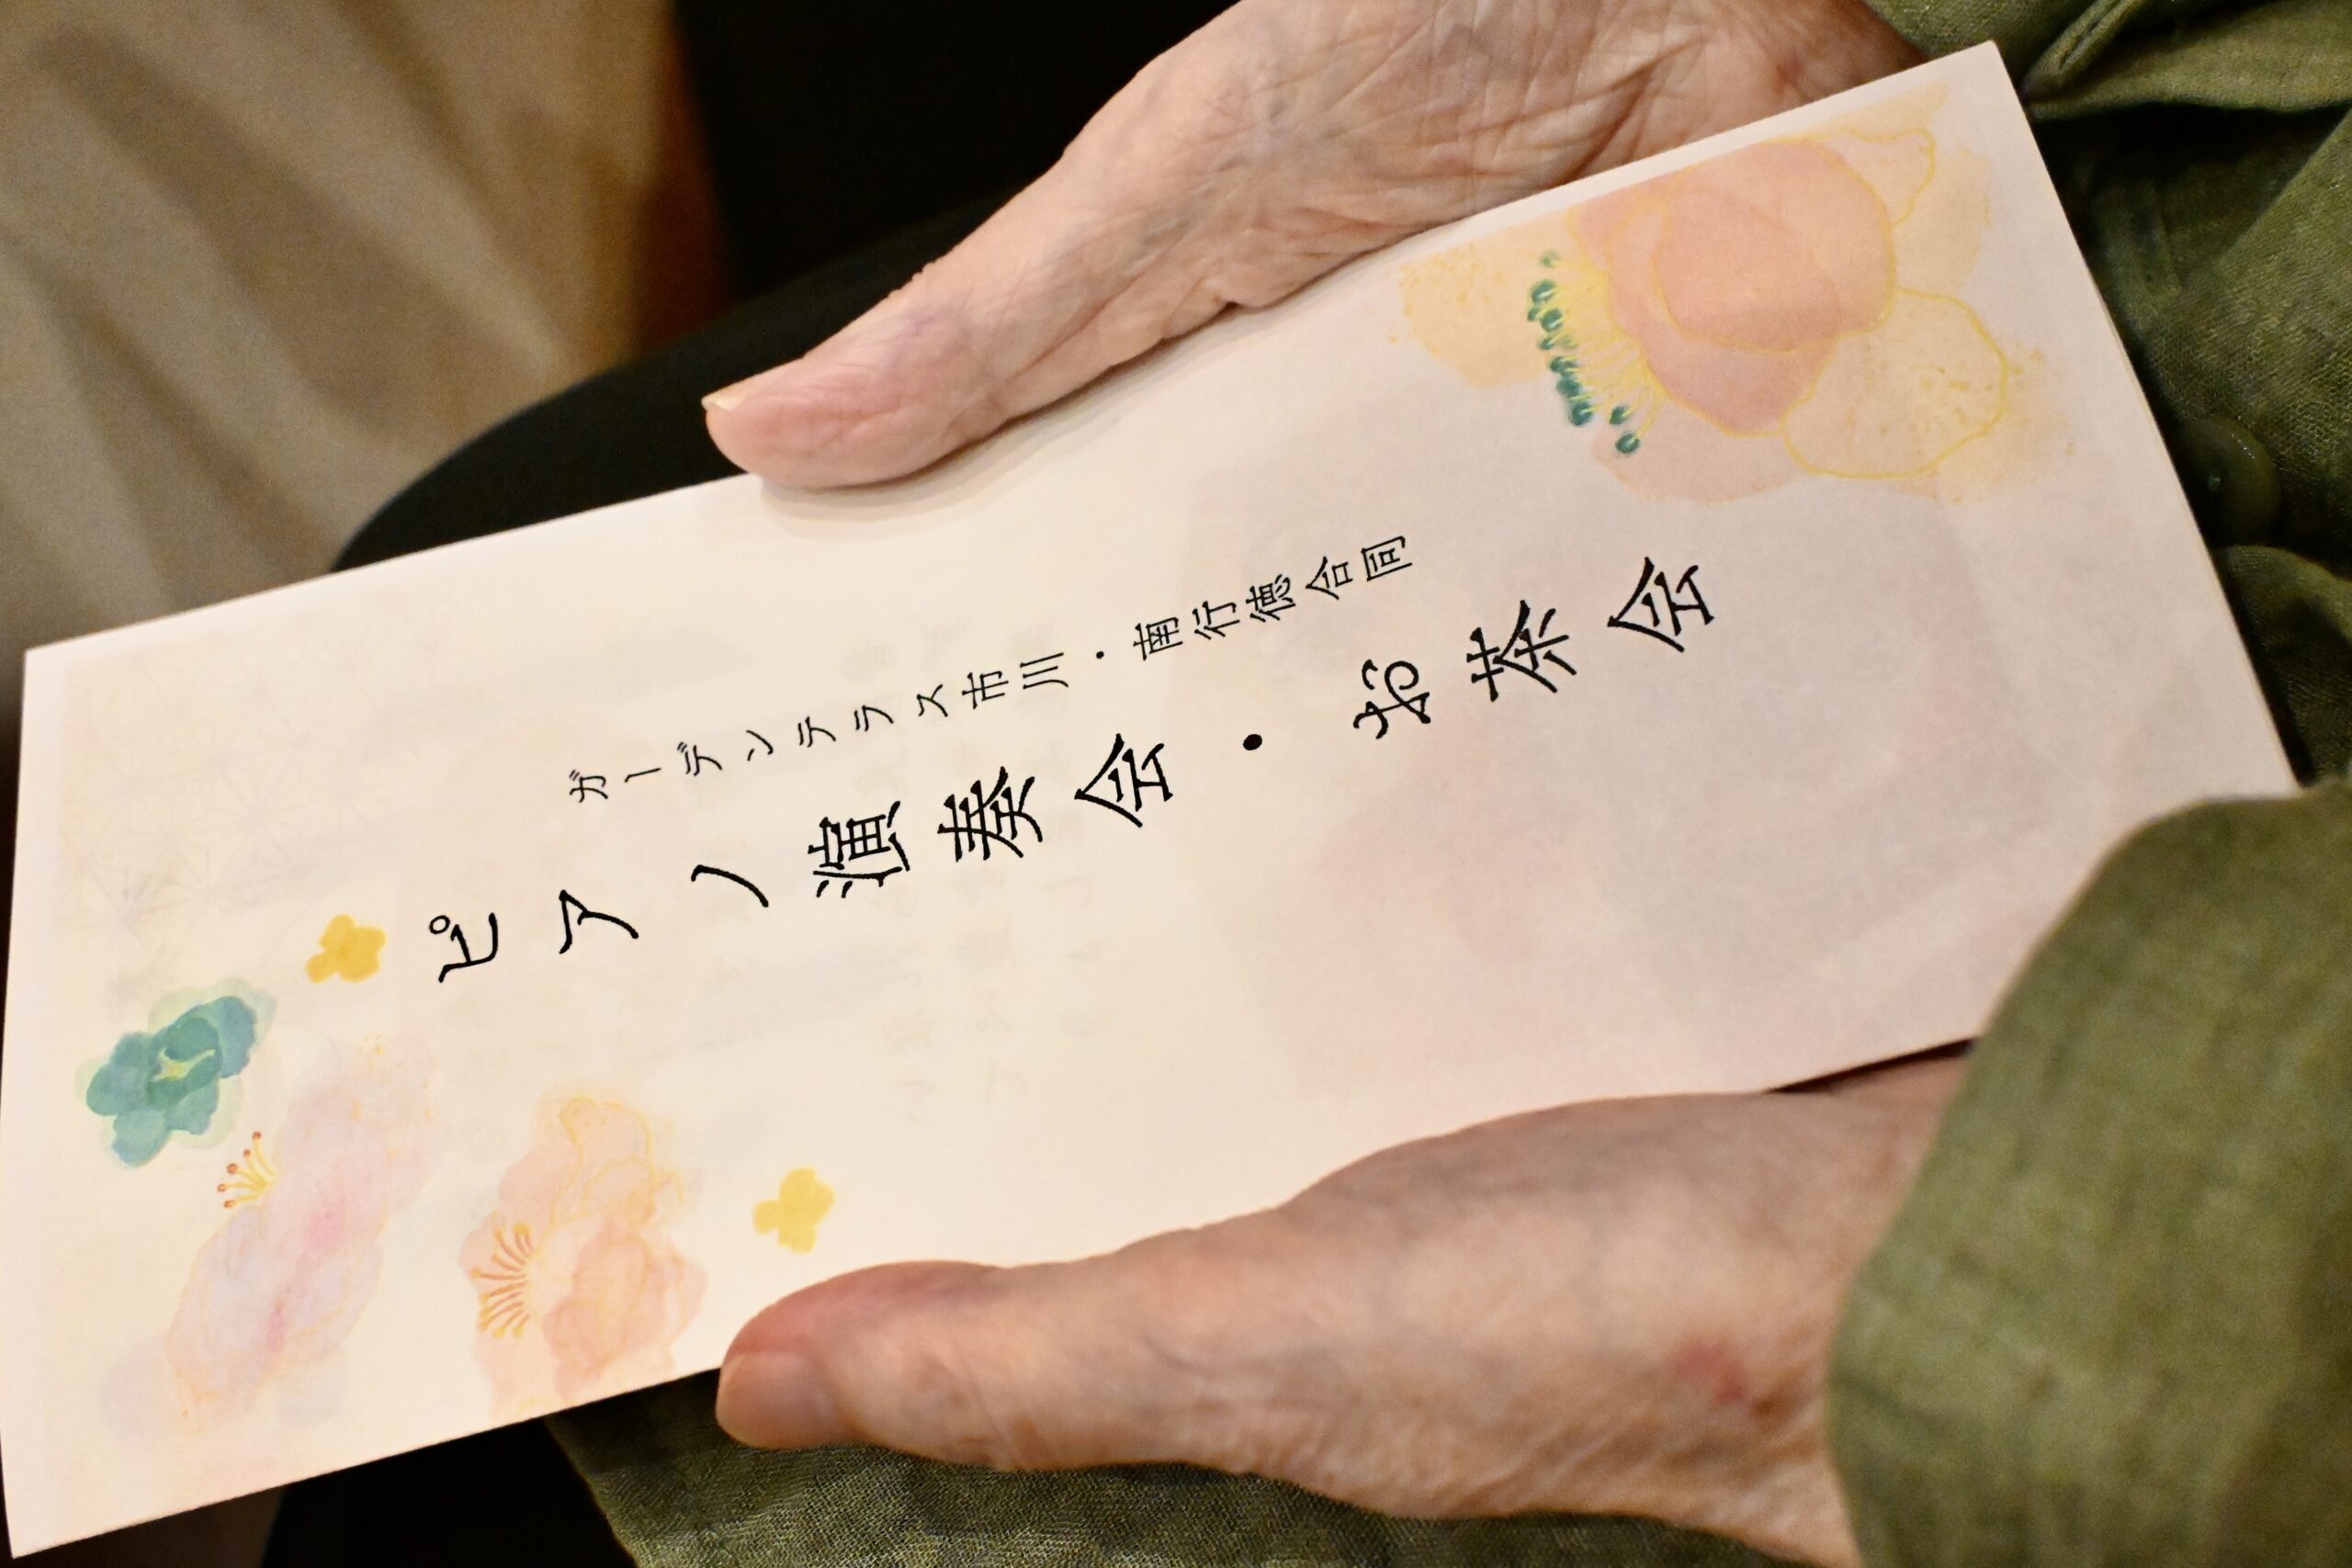 ガーデンテラス市川・南行徳合同
ピアノ演奏会・お茶会